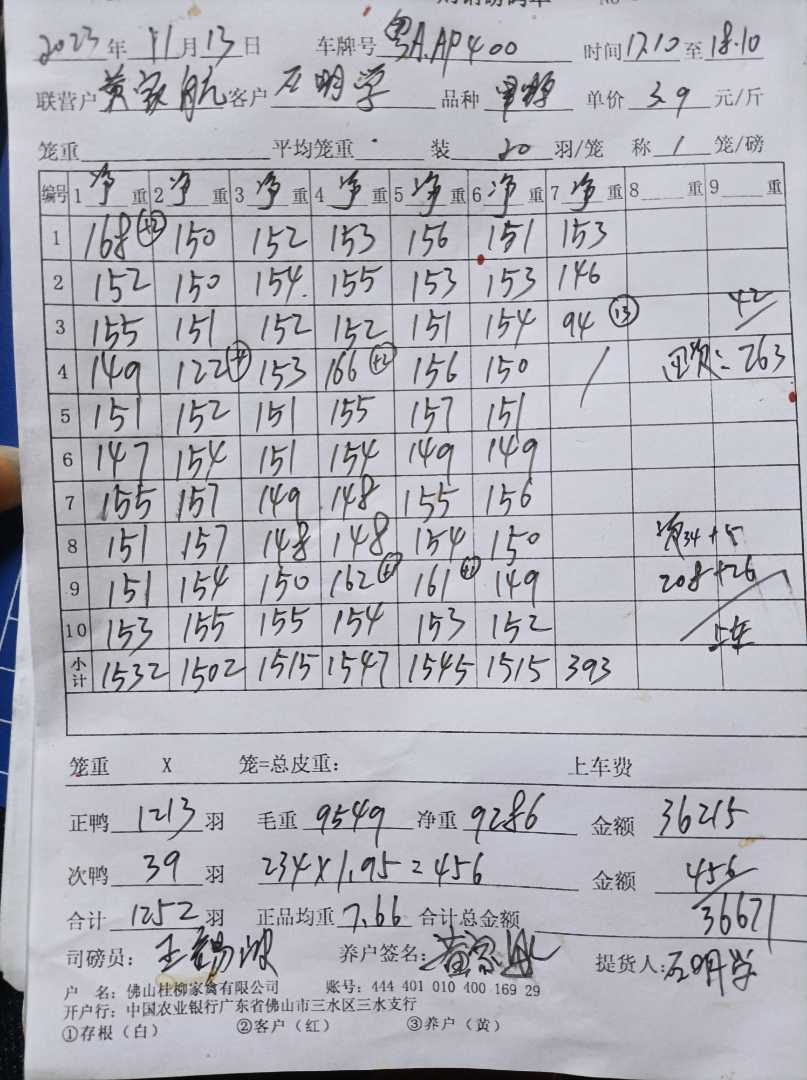 2023年 11月13日 车牌号 粤A.AP400 时间17.10至18.10
联营户 黄家航 客户 石明学 品种 单价 3.9 元/斤
笼重 平均笼重 装 20 羽/笼 称 1 笼/磅
编号 1 净 重 2 净 重 3 净 重 4 净 重 5 净 重 6 净 重 7 净 重 8 重 9 重
1 168 +2 150 152 153 156 151 153
2 152 150 154. 155 153 153 146
3 155 151 152 152 151 154 94 13 42
4 149 122 153 166 +2 156 150 / 263
5 151 152 151 155 157 151
6 147 154 151 154 149 149
7 155 157 149 148 155 156
8 151 157 148 148 154 150 次34+5
9 151 154 150 162 161 149 208+26
10 153 155 155 154 153 152 上车
小计 1532 1502 1515 1547 1545 1515 393
笼重 X 笼=总皮重: 上车费
正鸭 1213 羽 毛重 9549 净重 9286 金额 36215
次鸭 39 羽 234X1.95=456 金额 456
合计 1252 羽 正品均重 7.66 合计总金额 36671
司磅员: 养户签名: 黄家航 提货人: 石明学
户 名: 佛山桂柳家禽有限公司 账号: 444 401 010 400 169 29
开户行: 中国农业银行广东省佛山市三水区三水支行
①存根（白） ②客户（红） ③养户（黄）